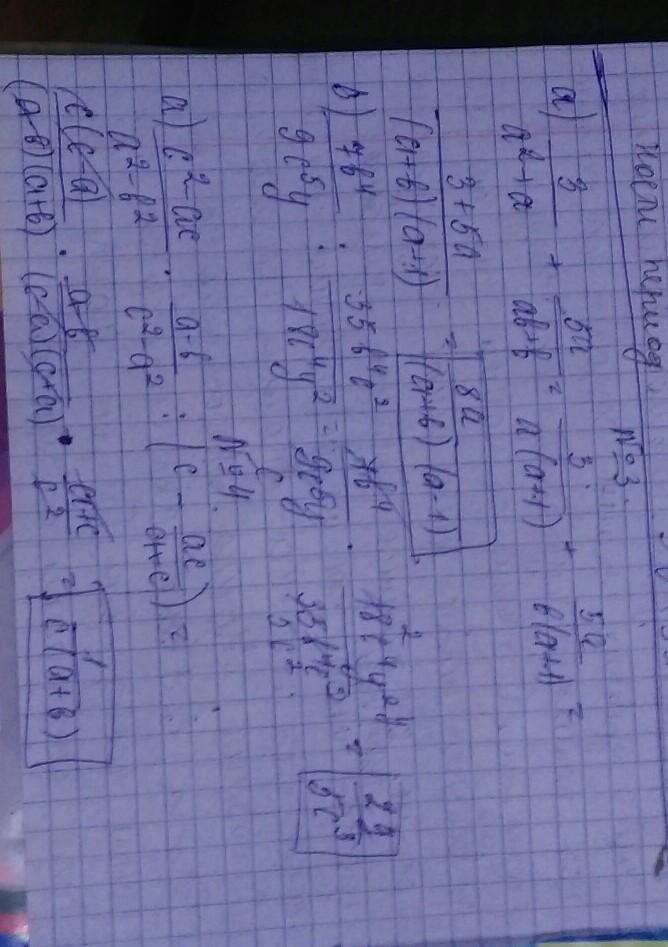 №3.
а) 3/(a²+a) + 5a/(ab+b) = 3/(a(a+1)) + 5a/(b(a+1)) =
(3+5a)/((a+b)(a+1)) = 8a/((a+b)(a+1))
в) 7b⁴/(9c⁵y) : 35b⁴c²/(18c⁴y²) = 7b⁴/(9c⁵y) · 18c⁴y²/(35b⁴c²) = 2y/(5c³)
№4.
а) (c²-ac)/(a²-b²) · (a-b)/(c²-a²) : (c - ac/(a+c)) =
c(c-a)/((a-b)(a+b)) · (a-b)/((c-a)(c+a)) · (a+c)/c² = 1/(c(a+b))